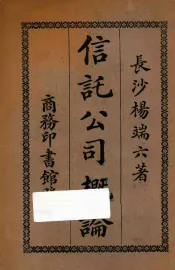 長沙楊端六著
信託公司概論
商務印書館